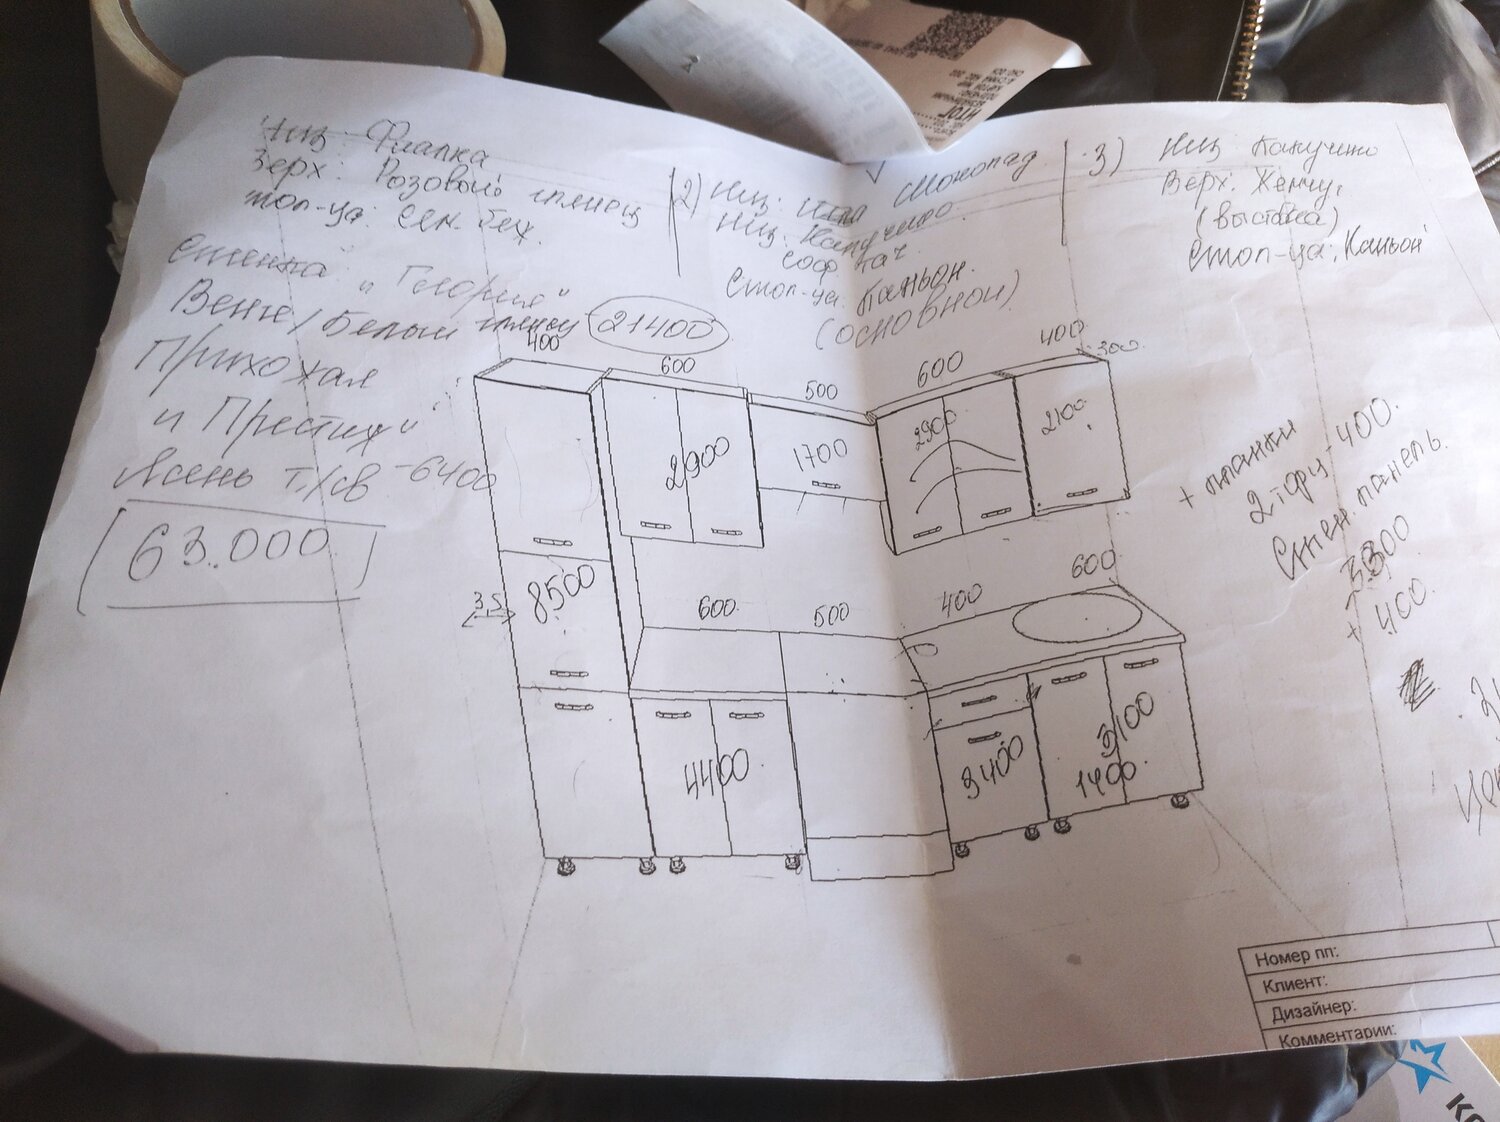 Низ: Фиалка
Верх: Розовый глянец
Стол-ца: Сем. беж.
2) Низ: Шоколад
Низ: Капучино
софт тач
Стол-ца: Каньон.
(основной)
3) Низ Капучино
Верх: Жемчуг
(выставка)
Стол-ца: Каньон
Стенка "Глория"
Венге/Белый глянец 21400
Прихожая
"Престиж"
Ясень т./св. -6400
63.000
400
600
500
600
400
300
2900
1700
2900
2100
8500
3,5
600
500
400
600
4400
3400
3100
1400
+ планки
2 торц-400.
Стен. панель.
3300
+ 400.
Номер пп:
Клиент:
Дизайнер:
Комментарии:
ИТОГ